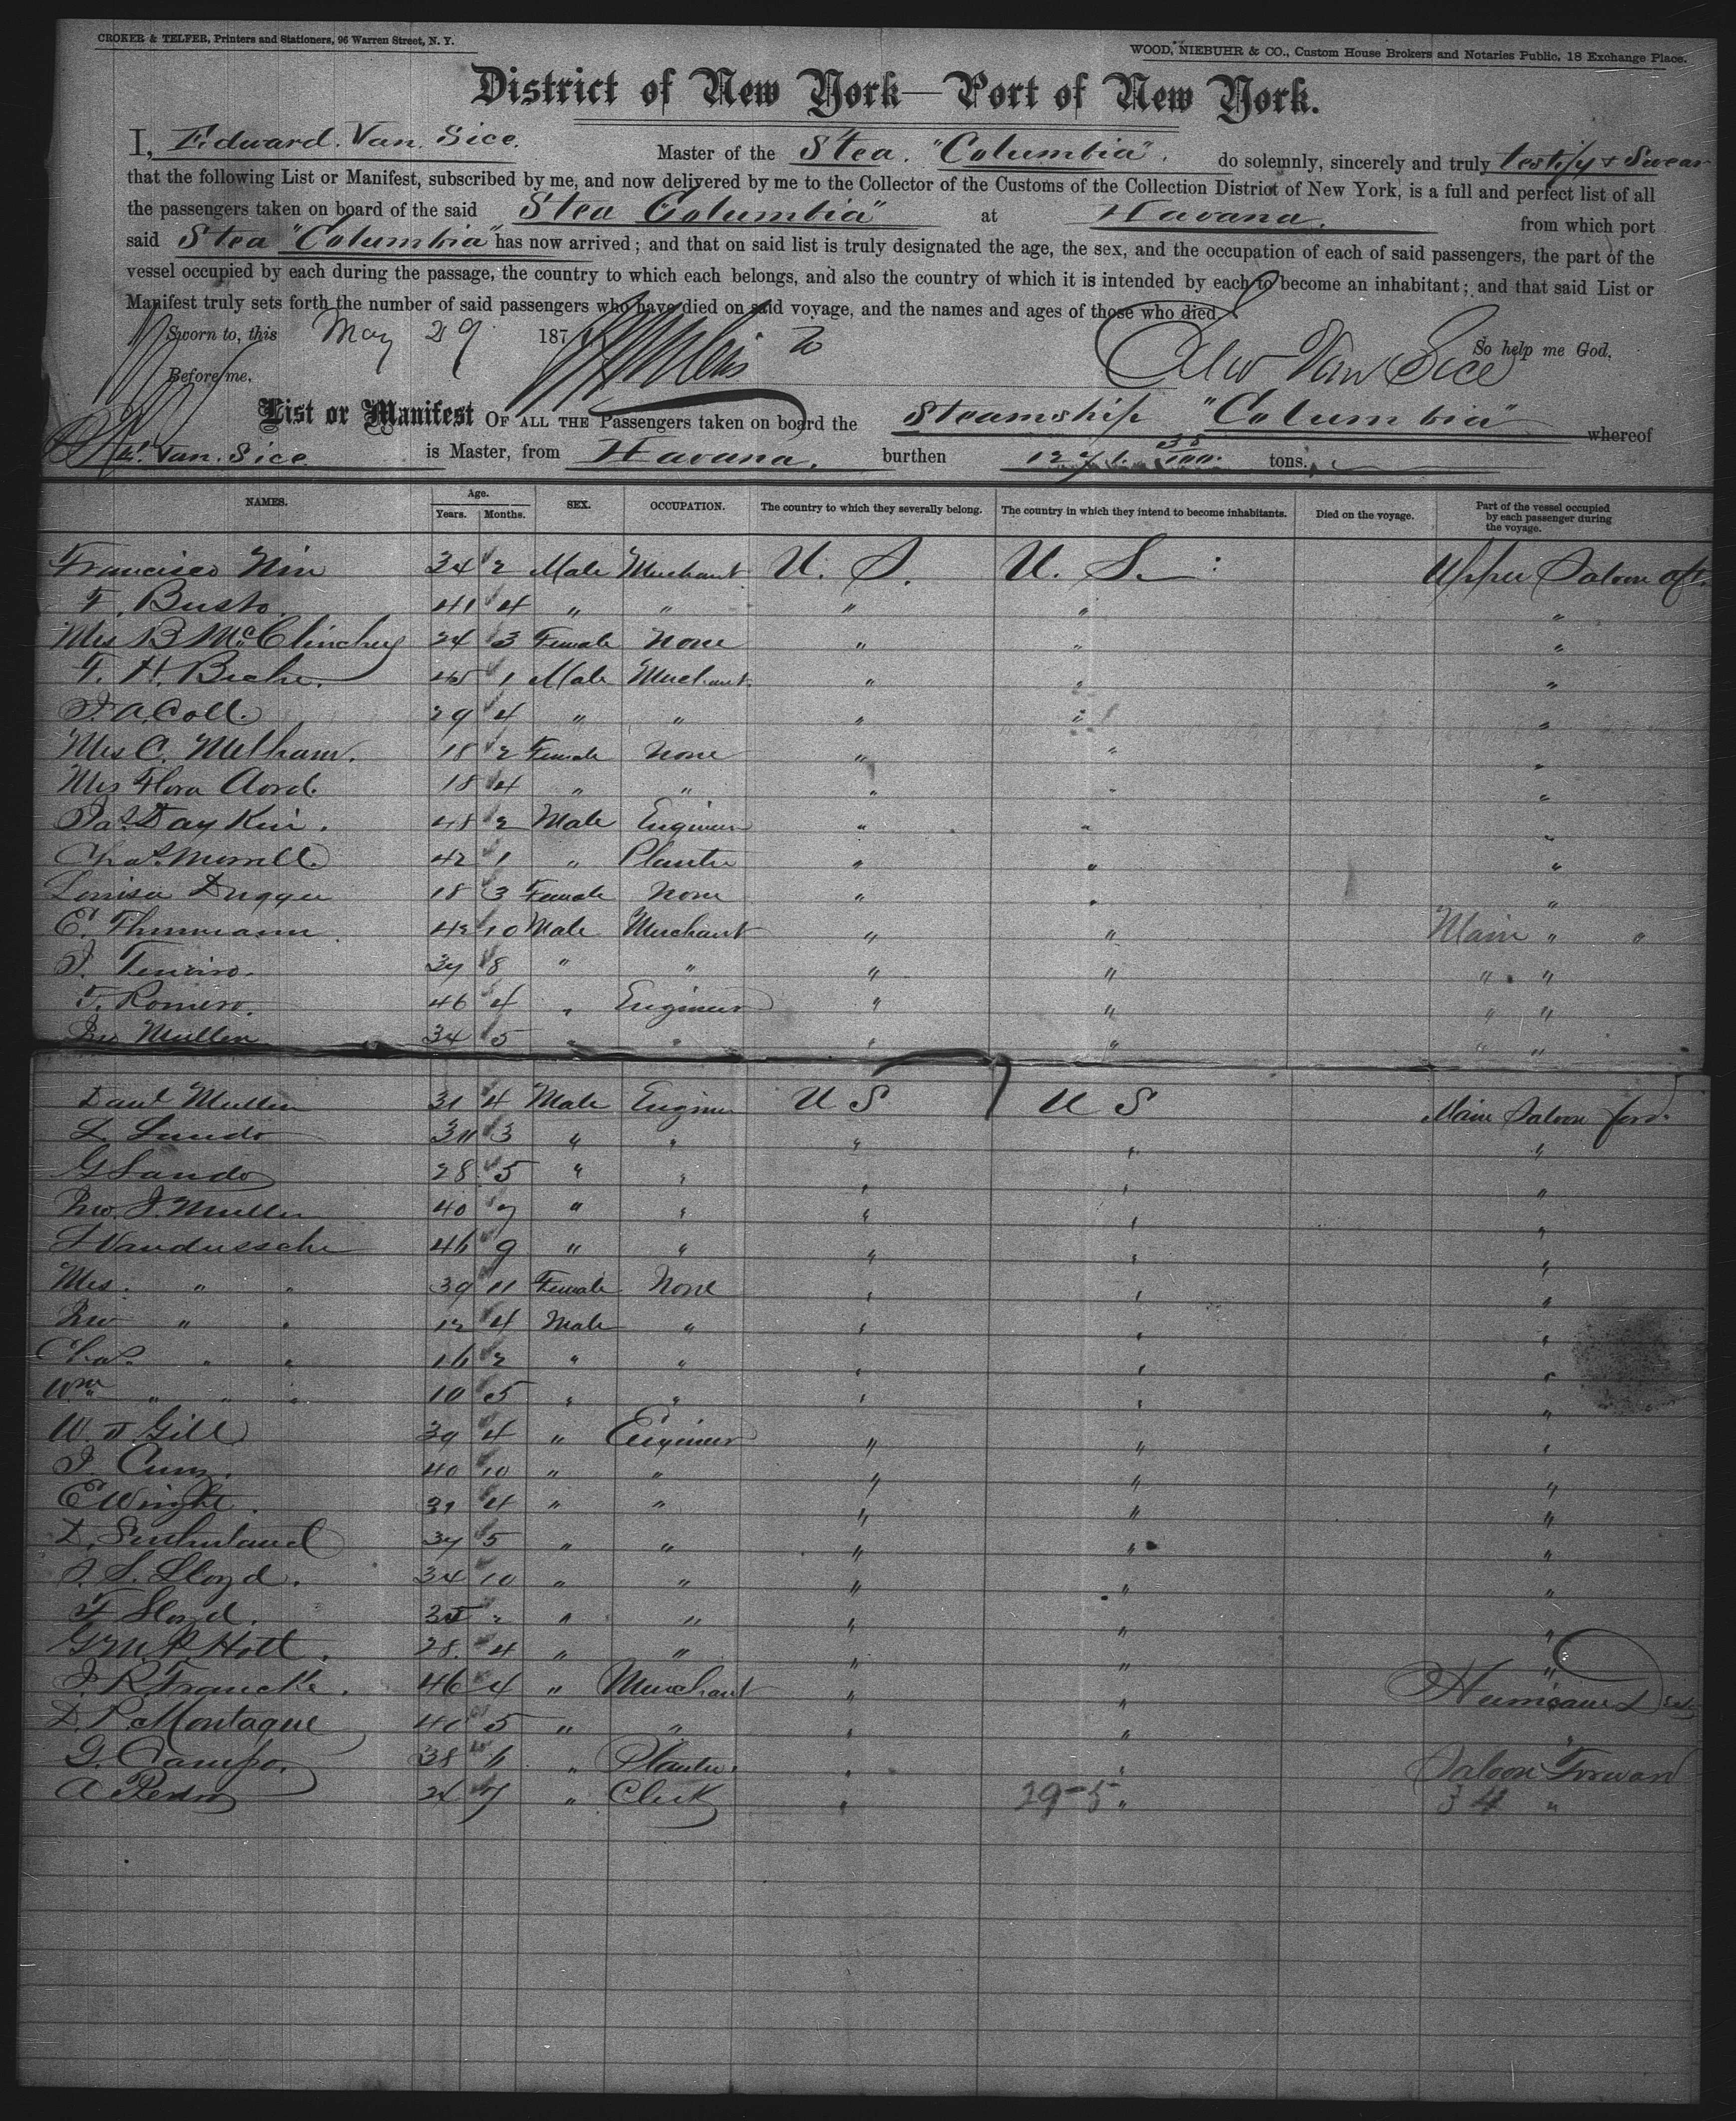 CROKER & TELFER, Printers and Stationers, 96 Warren Street, N. Y.
WOOD, NIEBUHR & CO., Custom House Brokers and Notaries Public, 18 Exchange Place.
District of New York—Port of New York.
I, Edward. Van. Sice. Master of the Stea. "Columbia". do solemnly, sincerely and truly testify & Swear
that the following List or Manifest, subscribed by me, and now delivered by me to the Collector of the Customs of the Collection District of New York, is a full and perfect list of all
the passengers taken on board of the said Stea Columbia" at Havana. from which port
said Stea "Columbia" has now arrived; and that on said list is truly designated the age, the sex, and the occupation of each of said passengers, the part of the
vessel occupied by each during the passage, the country to which each belongs, and also the country of which it is intended by each to become an inhabitant; and that said List or
Manifest truly sets forth the number of said passengers who have died on said voyage, and the names and ages of those who died.
Sworn to, this May 29 187
So help me God,
Edw Van Sice
Before me,
List or Manifest OF ALL THE Passengers taken on board the Steamship "Columbia" whereof
Van. Sice is Master, from Havana. burthen 1271. 35/100. tons.
NAMES. Age. Years. Months. SEX. OCCUPATION. The country to which they severally belong. The country in which they intend to become inhabitants. Died on the voyage. Part of the vessel occupied by each passenger during the voyage.
Francisco Nin 34 2 Male Merchant U. S. U. S. Upper Saloon aft.
F. Busto. 41 4 " " " " "
Mrs B McClinchey 24 3 Female None " " "
F. H. Beche. 45 1 Male Merchant " " "
J. A. Coll. 29 4 " " " " "
Mrs C. Melham. 18 2 Female None " " "
Flora 18 4 " " " " "
Jas. Daykin. 48 2 Male Engineer " " "
Chas. Morrell. 42 1 " Planter " " "
Louisa Dugger 18 3 Female None " " "
E. Thurmann 42 10 Male Merchant " " Main " "
J. 8 " " " " " "
F. Romero. 46 4 " Engineer " " " "
Mullen 34 5 " " " " " "
Danl Mullen 31 4 Male Engineer U S U S Main Saloon ford.
L. Lando 3 " " " " "
G Lando 28 5 " " " " "
Jno. J. Mullen 40 7 " " " " "
Vandussche 46 9 " " " " "
Mrs. " " 39 11 Female None " " "
Jno " " 12 4 Male " " " "
Chas. " " 16 2 " " " " "
Wm " " " 10 5 " " " " "
W. J. Gill 39 4 " Engineer " " "
J. 40 10 " " " " "
E Wright. 4 " " " " "
D. Sutherland 5 " " " " "
J. S. Lloyd. 34 10 " " " " "
F Lloyd. 35 2 " " " " "
Holt. 28. 4 " " " " "
J. R. Francke. 46 4 " Merchant " " Hurricane D
D. P. Montague 40 5 " " " " "
G. Campo. 38 6 " Planter. " " Saloon Forward
A 24 7 " Clerk " 29-5 " 34 "